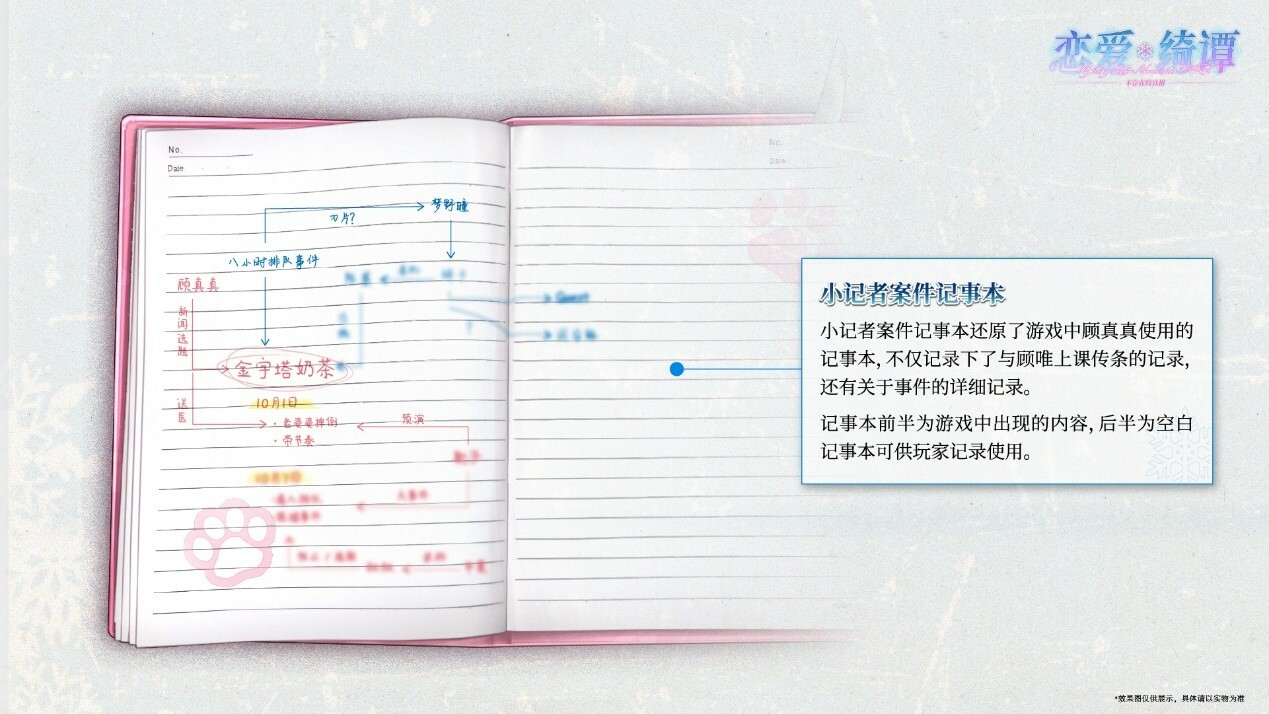 恋爱绮谭
不存在的真相
No.
Date
No.
Date
梦野瞳
刃片?
八小时排队事件
顾真真
新闻选题
金字塔奶茶
送医
10月1日
·老婆婆摔倒
·带节奏
预演
10月3日
Guest
小记者案件记事本
小记者案件记事本还原了游戏中顾真真使用的
记事本, 不仅记录下了与顾唯上课传条的记录,
还有关于事件的详细记录。
记事本前半为游戏中出现的内容, 后半为空白
记事本可供玩家记录使用。
*效果图仅供展示，具体请以实物为准